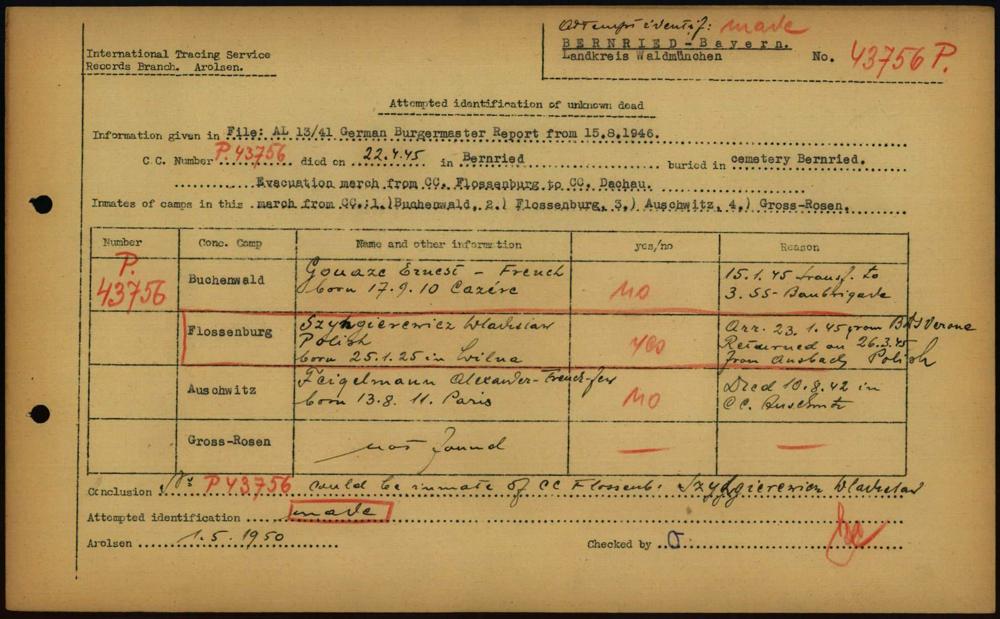 Attempt identif: made
International Tracing Service
Records Branch. Arolsen.
BERNRIED-Bayern.
Landkreis Waldmünchen
No. 43756 P.
Attempted identification of unknown dead
Information given in File: AL 13/41 German Burgermaster Report from 15.8.1946.
C.C. Number P.43756 died on 22.4.45 in Bernried buried in cemetery Bernried.
Evacuation march from CC. Flossenburg to CC. Dachau.
Inmates of camps in this march from CC.:1.)Buchenwald, 2.) Flossenburg, 3.) Auschwitz, 4.) Gross-Rosen.
Number Conc. Camp Name and other information yes/no Reason
P. 43756
Buchenwald Gouaze Ernest - French born 17.9.10 Cazére no 15.1.45 transf. to 3. SS-Baubrigade
Flossenburg Szyngierewicz Wladislaw Polish born 25.1.25 in Wilna yes Arr. 23.1.45 from BdS Verona Returned on 26.3.45 from Ansbach Polish
Auschwitz Feigelmann Alexander- French-Jew born 13.8.11. Paris no Died 10.8.42 in CC. Auschwitz
Gross-Rosen not found —
Conclusion Nr P43756 could be inmate of CC Flossenb: Szyngierewicz Wladislaw
Attempted identification made
Arolsen 1.5.1950 Checked by